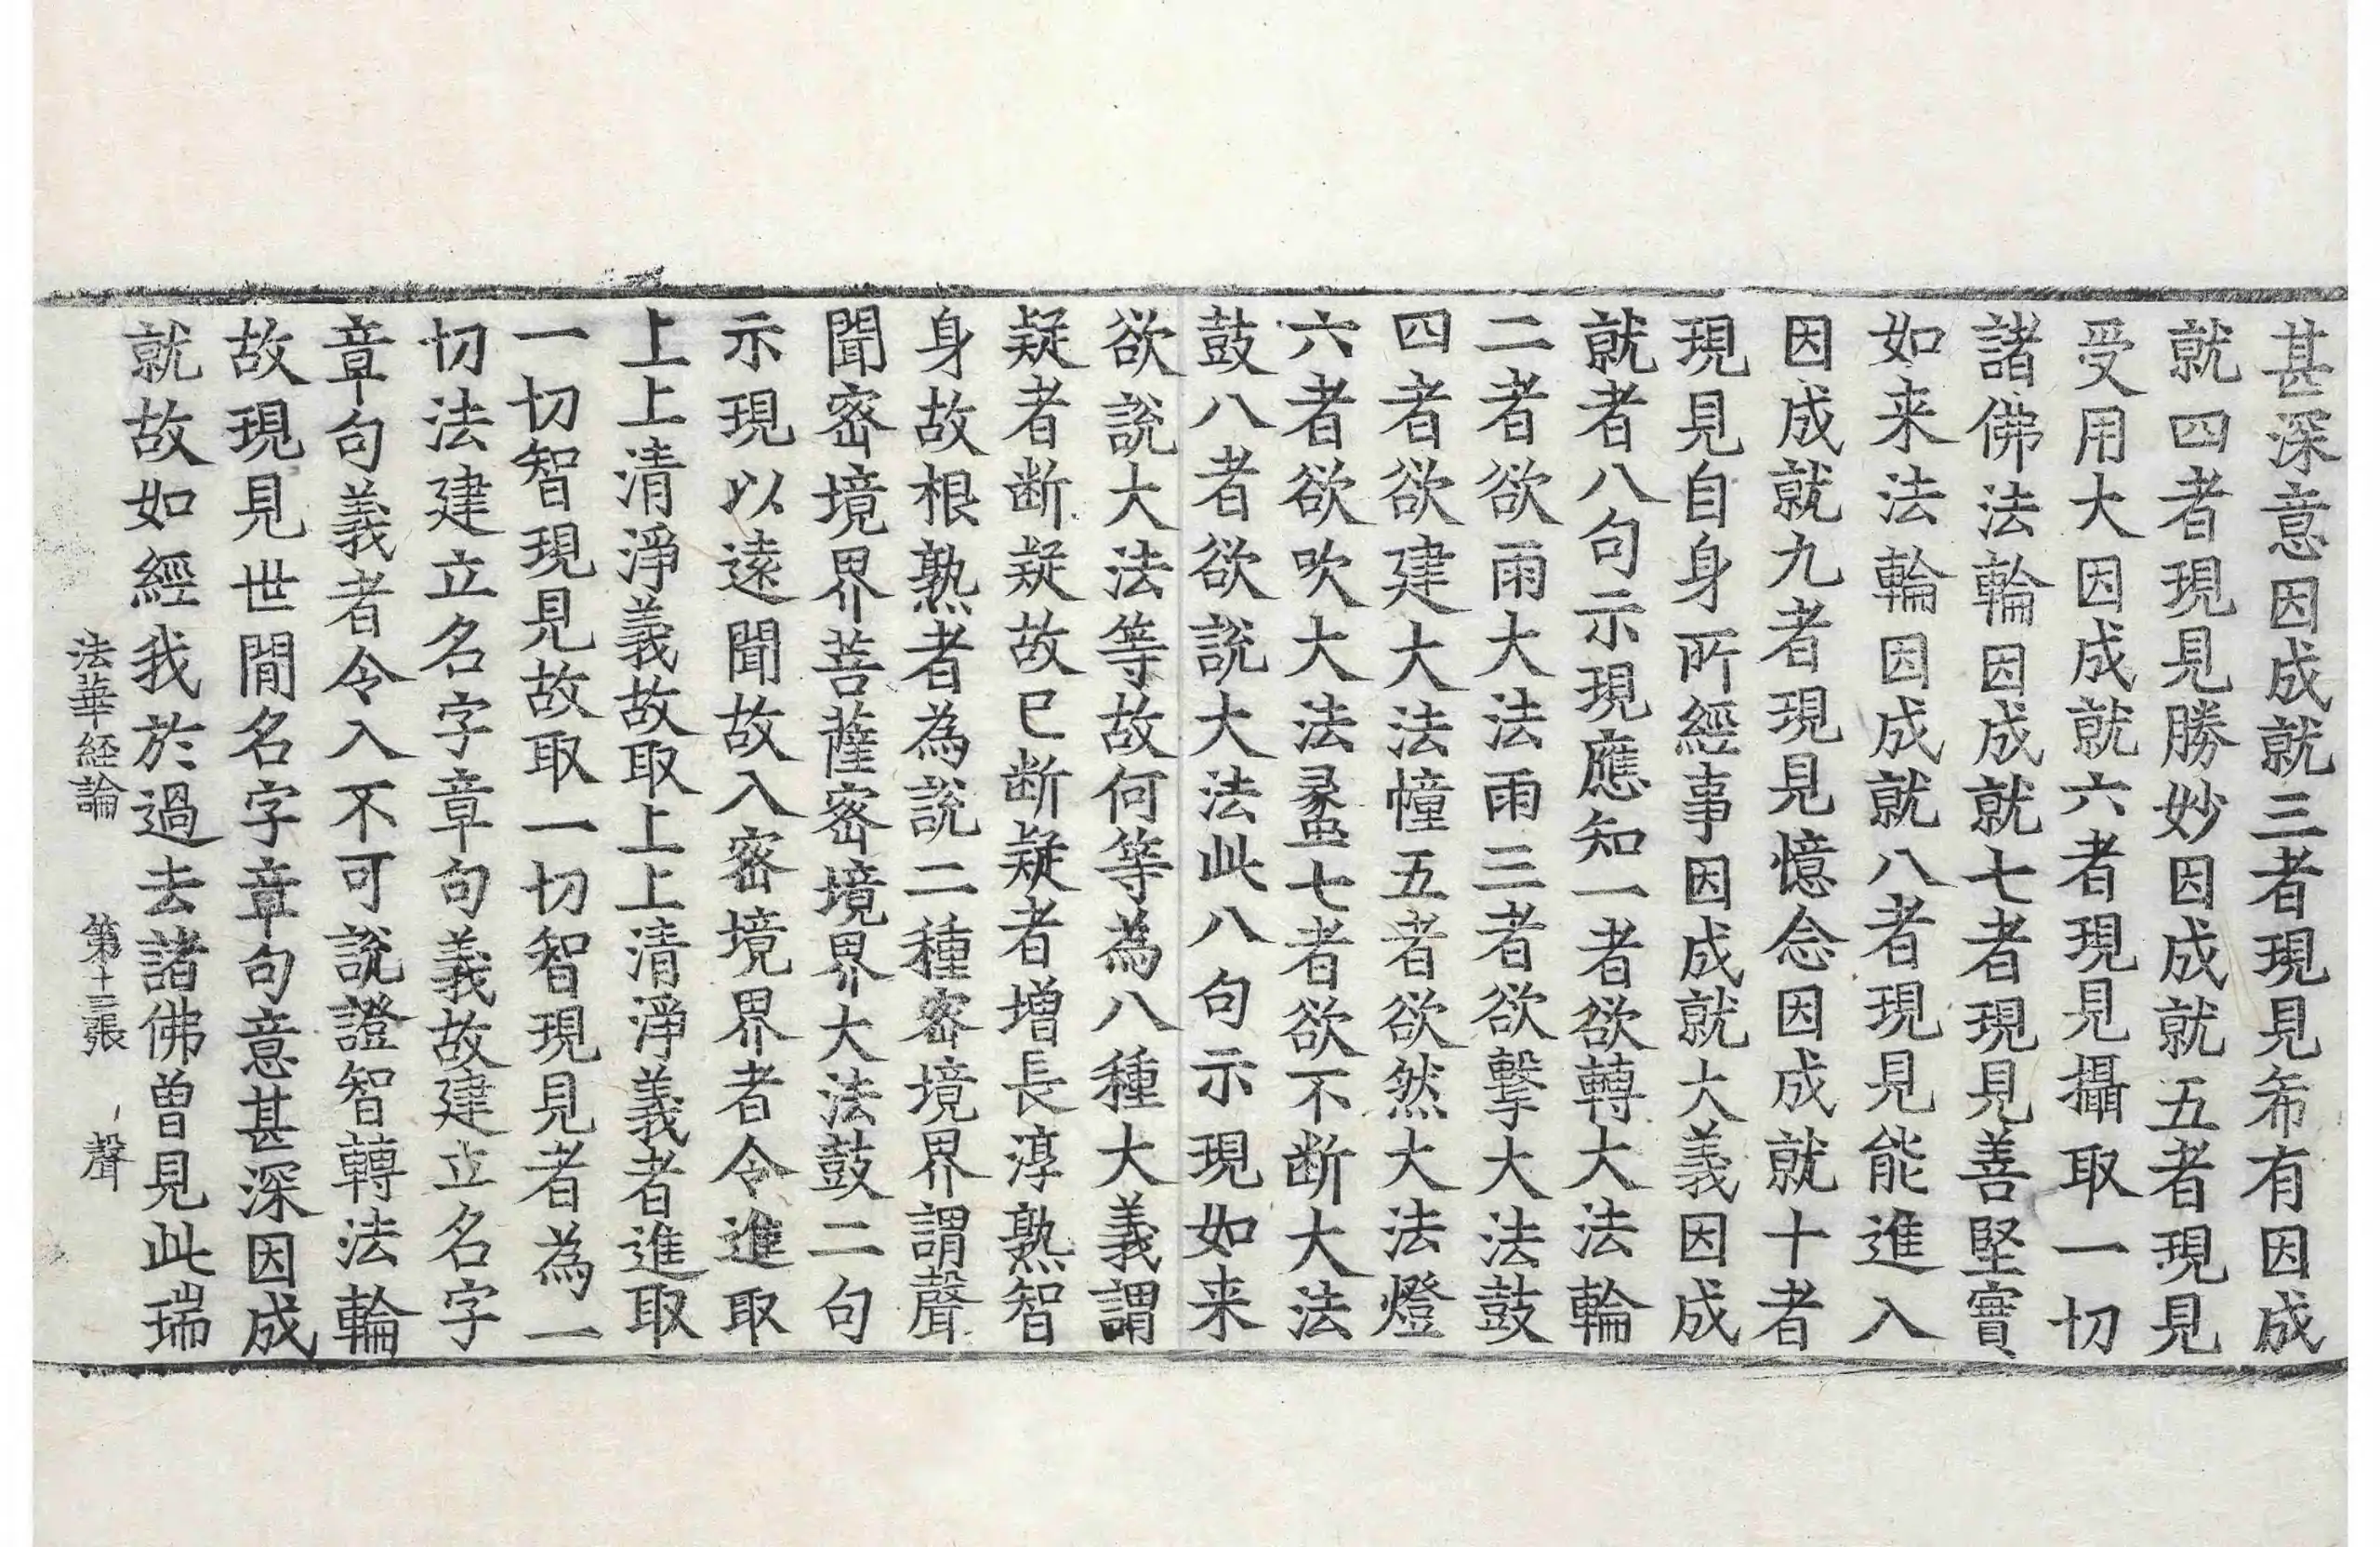 甚深意因成就三者現見希有因成
就四者現見勝妙因成就五者現見
受用大因成就六者現見攝取一切
諸佛法輪因成就七者現見善堅實
如来法輪因成就八者現見能進入
因成就九者現見憶念因成就十者
現見自身所經事因成就大義因成
就者八句示現應知一者欲轉大法輪
二者欲雨大法雨三者欲擊大法鼓
四者欲建大法幢五者欲然大法燈
六者欲吹大法䗍七者欲不断大法
鼓八者欲說大法此八句示現如来
欲說大法等故何等為八種大義謂
疑者断疑故已断疑者增長淳熟智
身故根熟者為說二種密境界謂聲
聞密境界菩薩密境界大法鼓二句
示現以遠聞故入密境界者令進取
上上清淨義故取上上清淨義者進取
一切智現見故取一切智現見者為一
切法建立名字章句義故建立名字
章句義者令入不可說證智轉法輪
故現見世間名字章句意甚深因成
就故如經我於過去諸佛曾見此瑞
法華経論 第十三張 聲